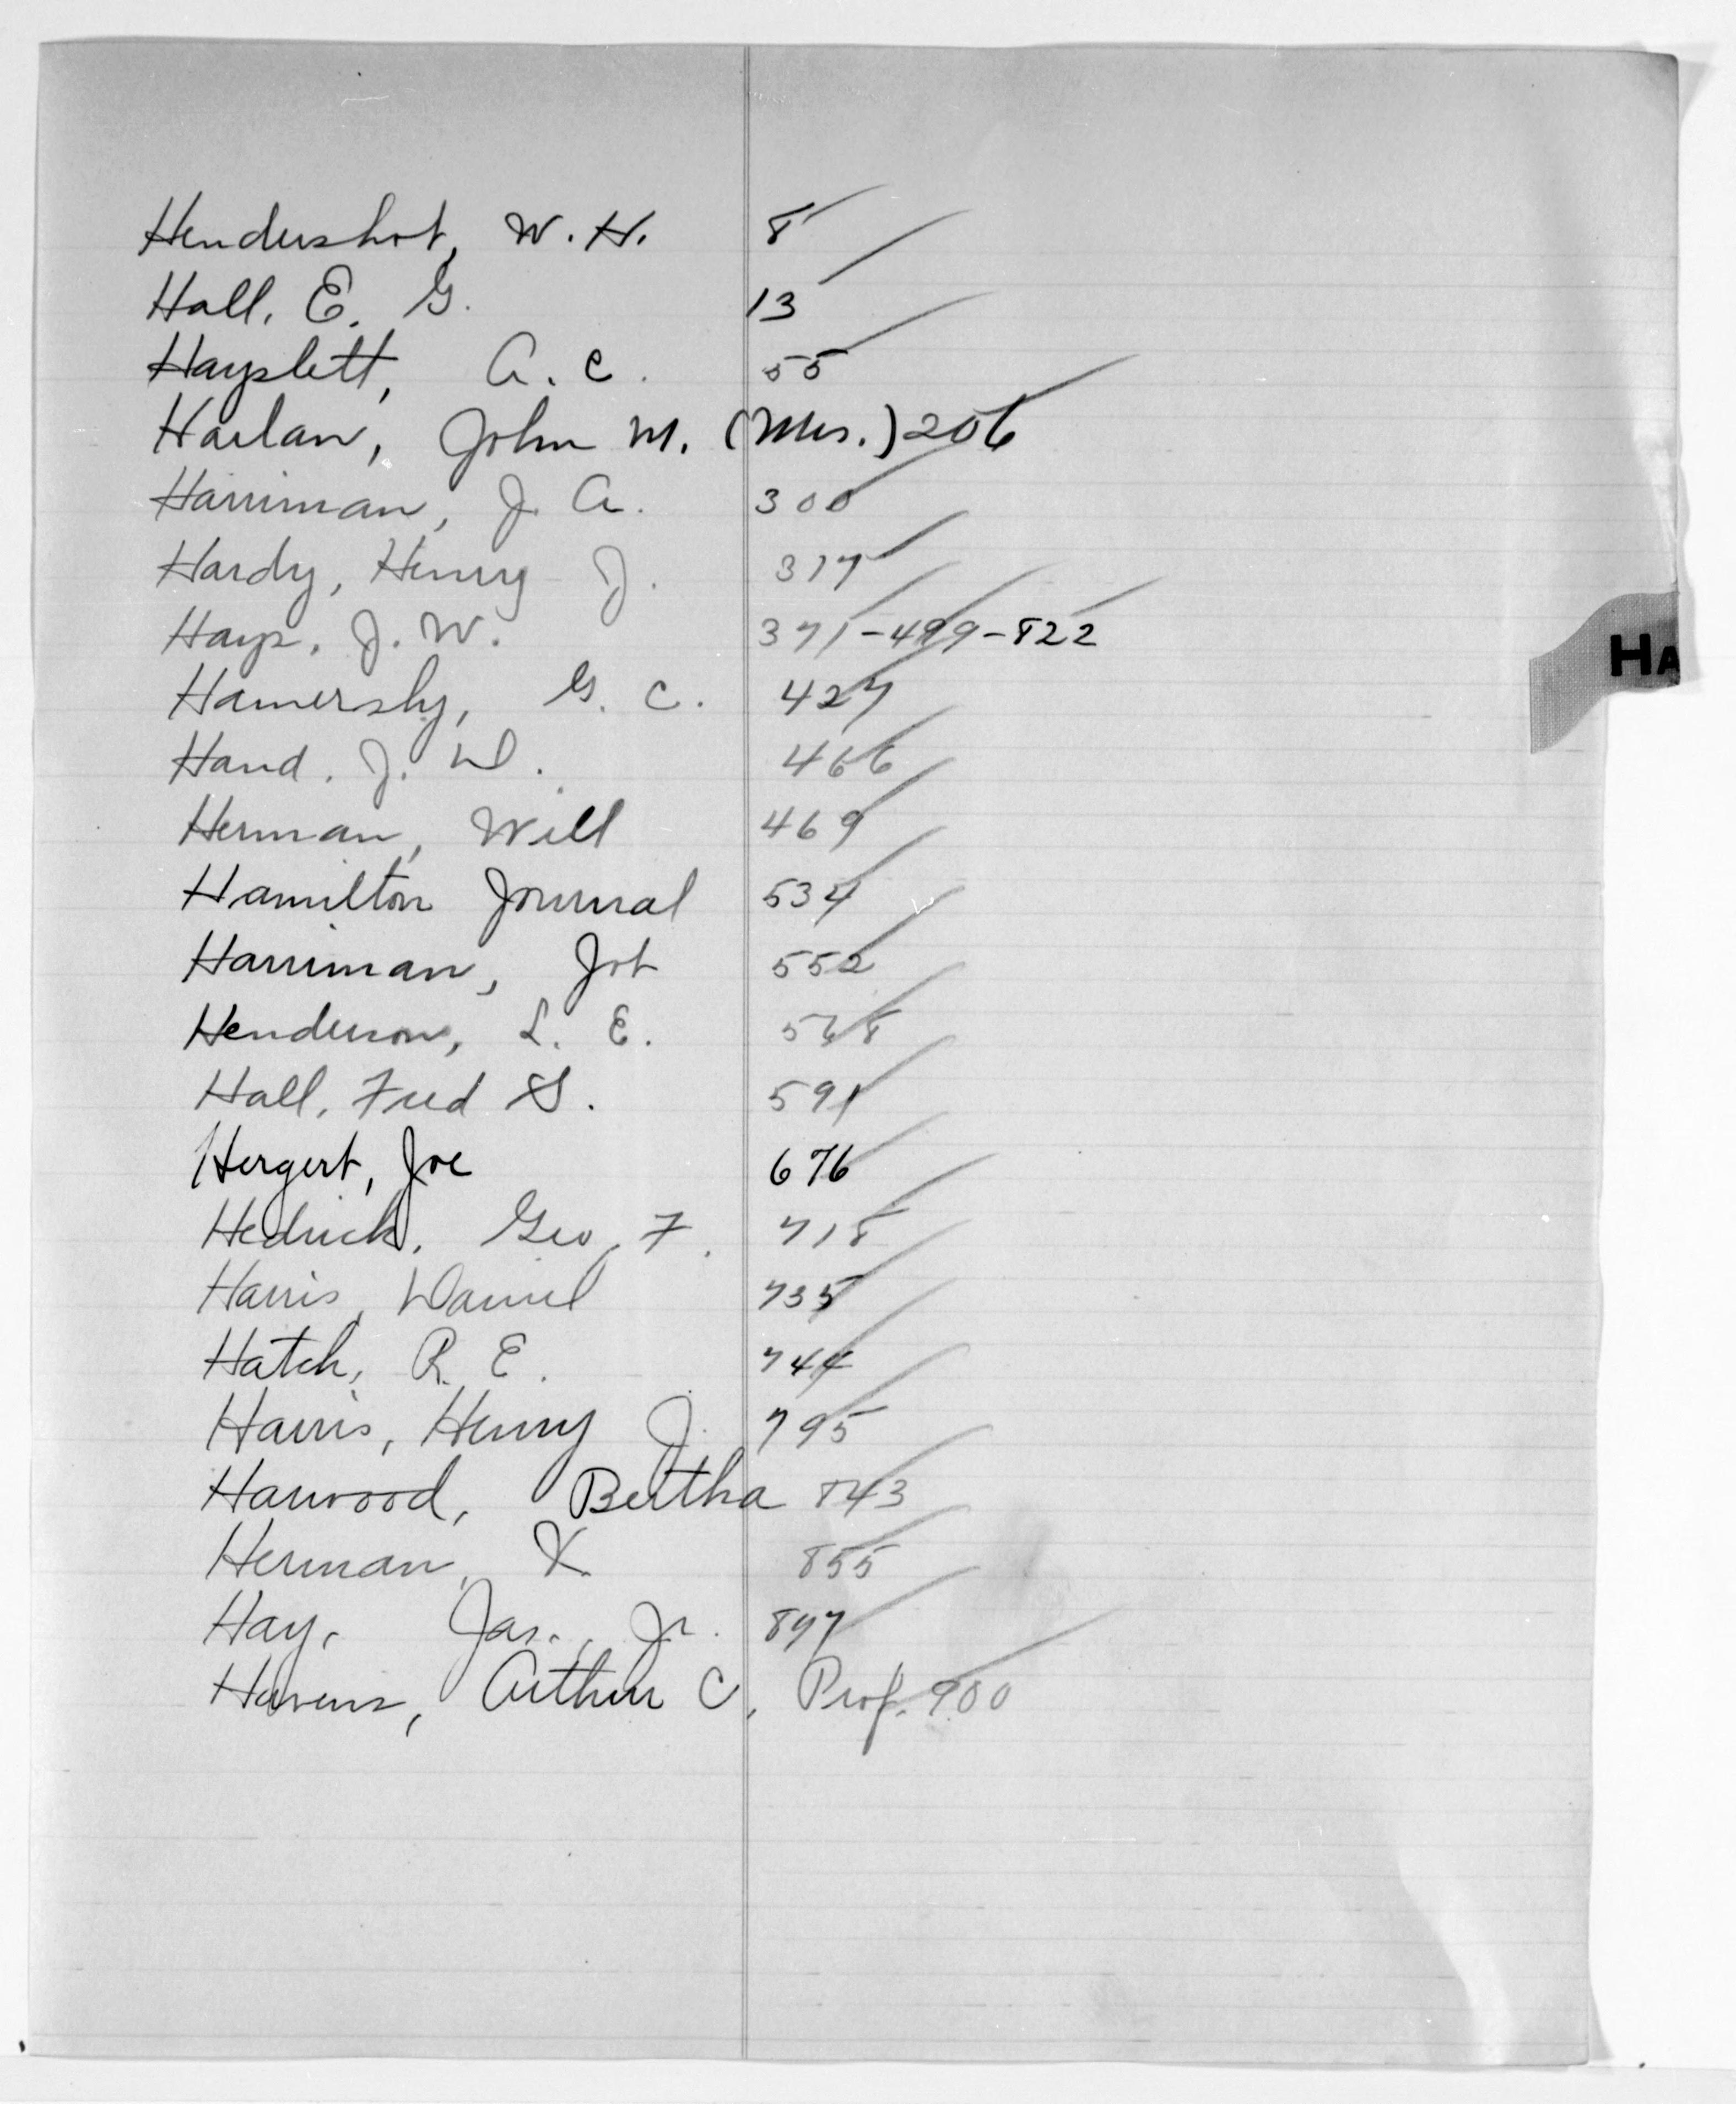 Hendershot, W. H. 8
Hall, E. G. 13
Hayslett, A. C. 55
Harlan, John M. (Mrs.) 206
Harriman, J. A. 300
Hardy, Henry J. 317
Hays, J. W. 371-499-822
Hamersly, G. C. 427
Hand, J. W. 466
HA
Herman, Will 469
Hamilton Journal 534
Harriman, Job 552
Henderson, L. E. 568
Hall, Fred S. 591
Hergert, Joe 676
Hedrick, Geo. F. 718
Harris, Daniel 735
Hatch, R. E. 744
Harris, Henry J. 795
Harwood, Bertha 843
Herman, X. 855
Hay, Jas., Jr. 897
Havens, Arthur C. Prof. 900